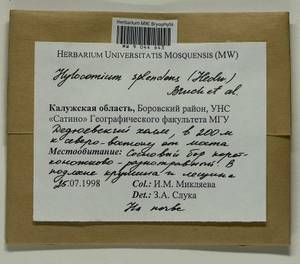 Herbarium MW, Bryophyta
MW 9 044 643
HERBARIUM UNIVERSITATIS MOSQUENSIS (MW)
Hylocomium splendens (Hedw.)
Bruch et al.
Калужская область, Боровский район, УНС
«Сатино» Географического факультета МГУ
Дедюевский холм, в 200 м
к северо-востоку от моста
Местообитание: Сосновый бор
разнотравный. В
подлеске крушина и лещина
25.07.1998 Col.: И.М. Микляева
Det.: З.А. Слука
На почве